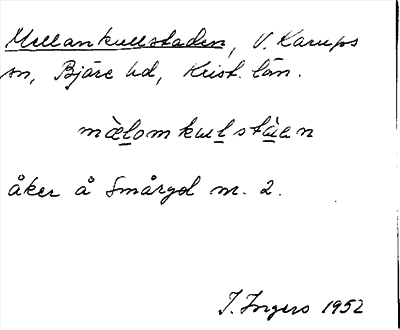 Mellankullstaden, V. Karups
sn, Bjäre hd, Krist. län.
mæ̀lomkulstàen
åker å Smårgd nr. 2.
I. Ingers 1952